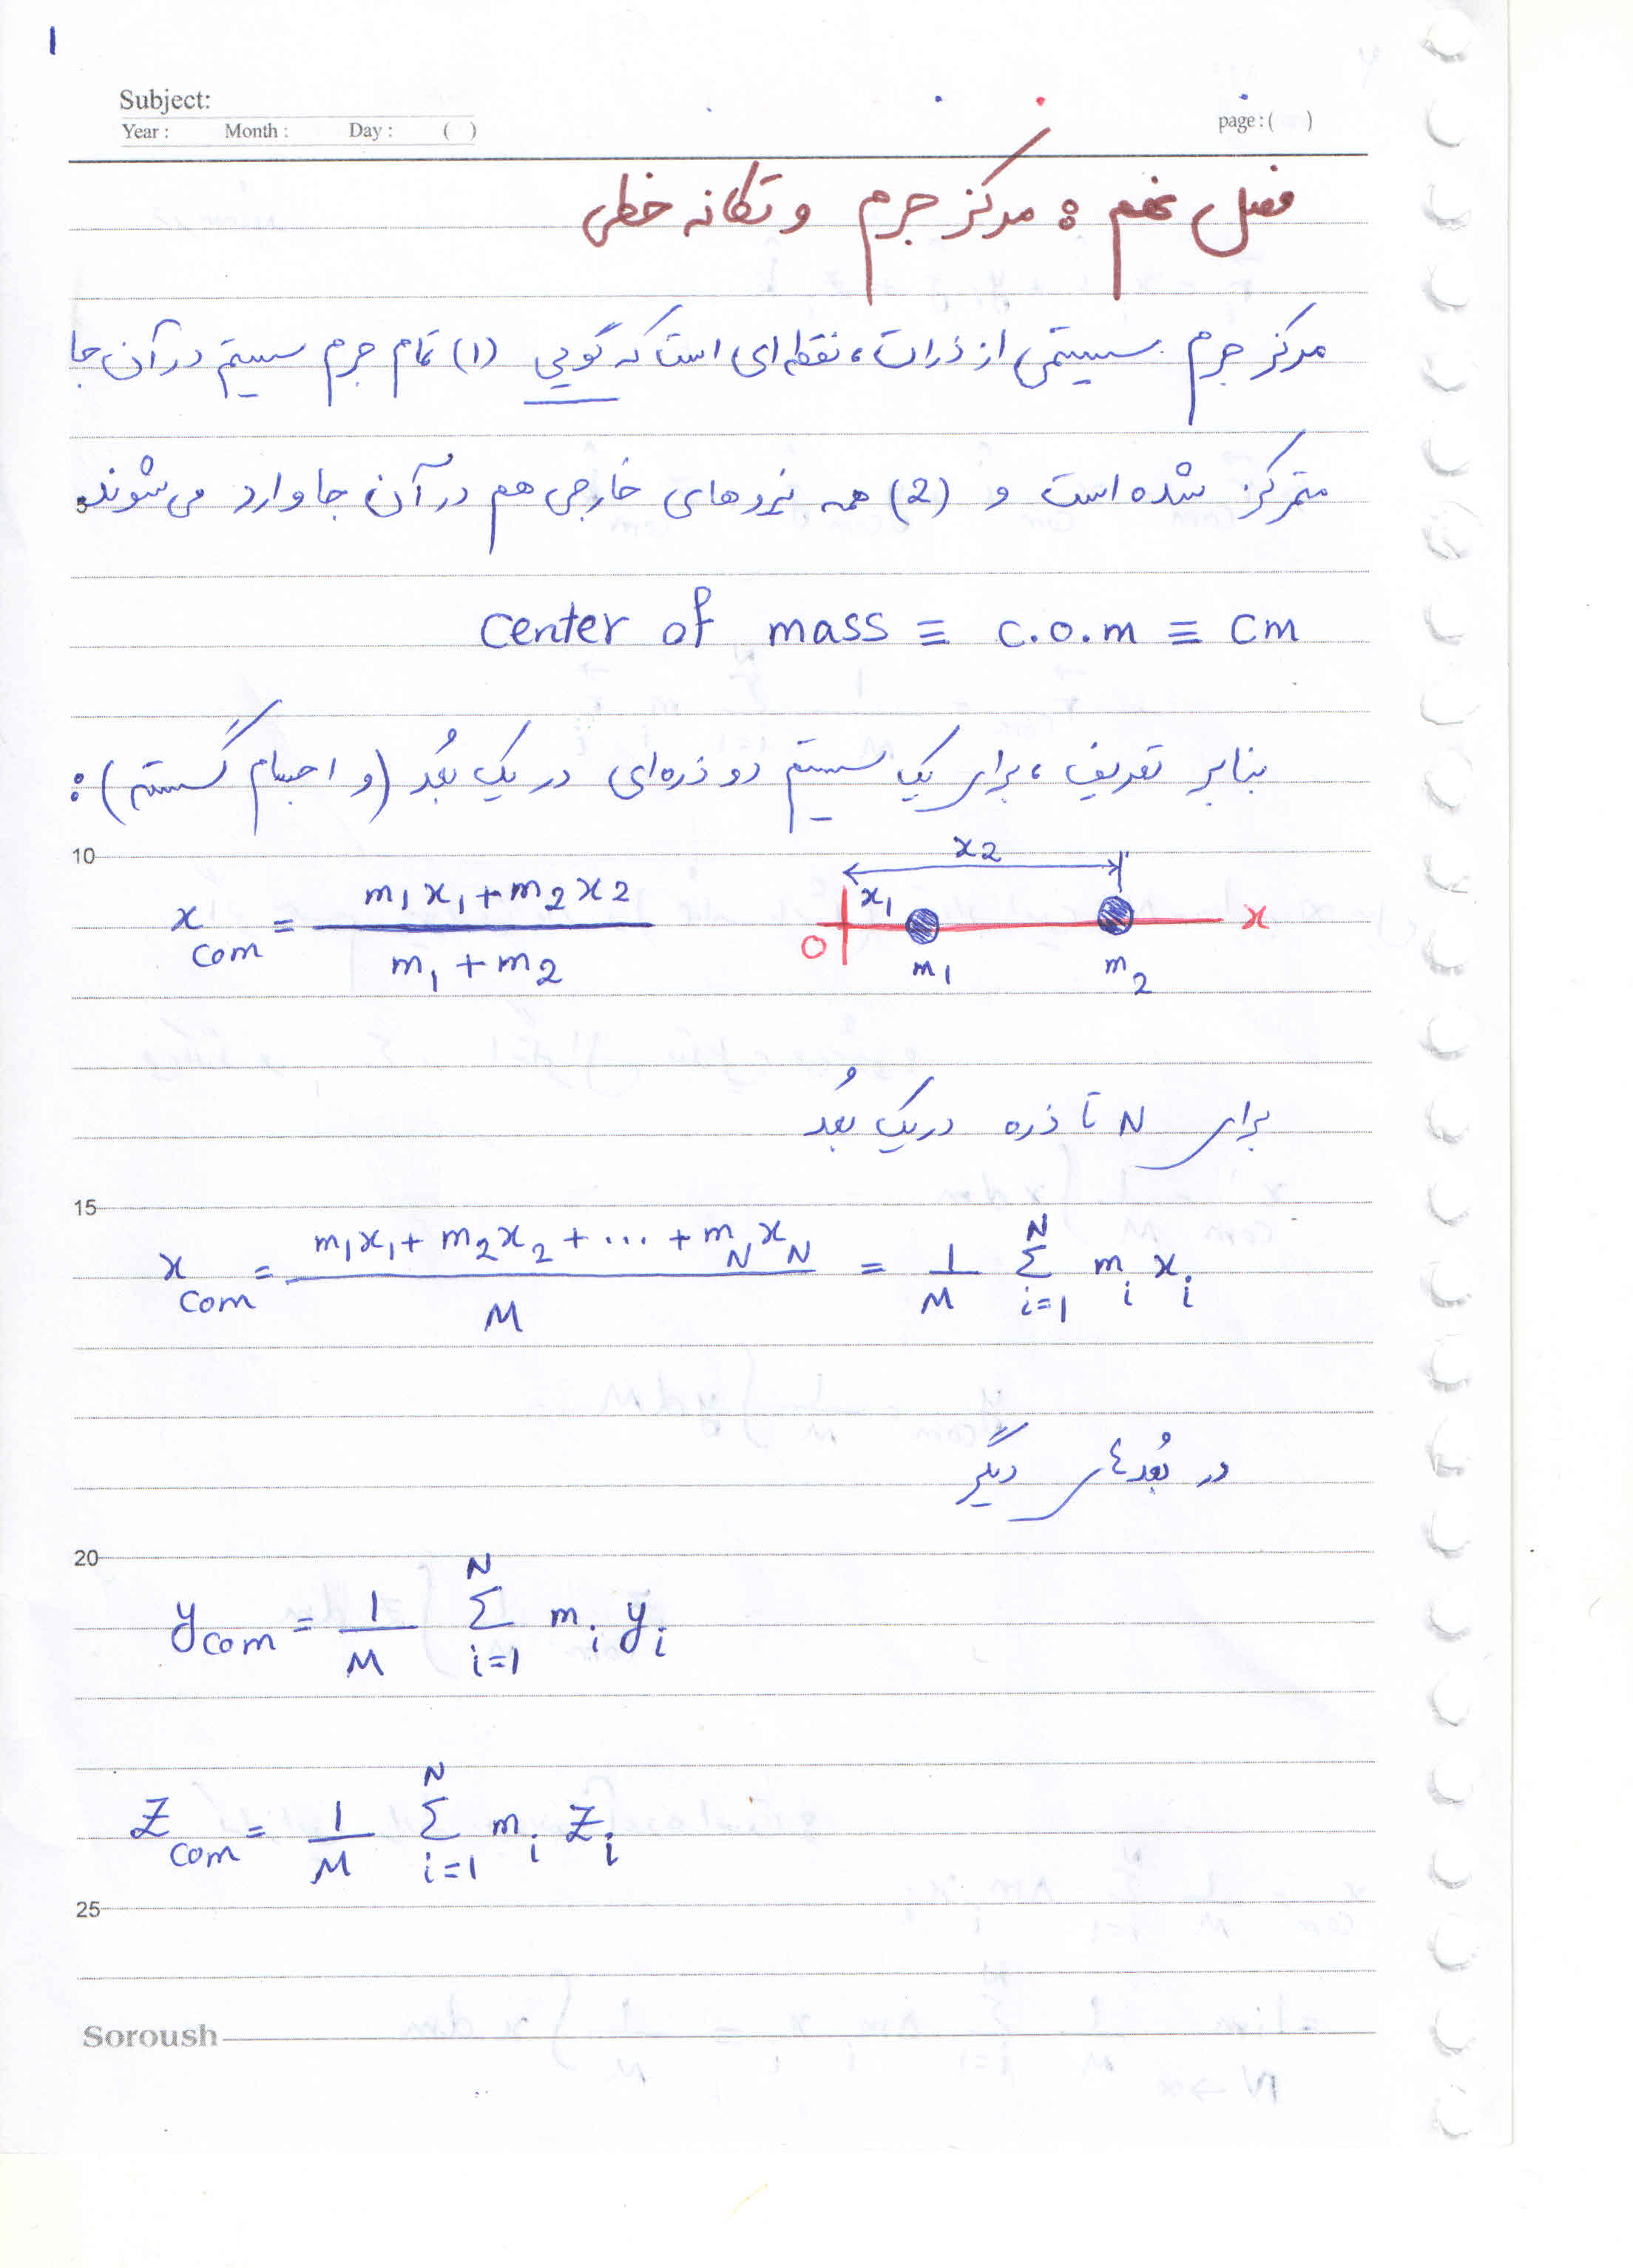 1
Subject:
Year : Month : Day : ( ) page : ( )
فصل نهم : مرکز جرم و تکانه خطی
مرکز جرم سیستمی از ذرات، نقطه ای است که گویی (1) تمام جرم سیستم در آن جا
متمرکز شده است و (2) همه نیروهای خارجی هم در آن جا وارد می شوند.
5
center of mass ≡ c.o.m ≡ cm
بنابر تعریف، برای یک سیستم دو ذره ای در یک بُعد (و اجسام گسسته) :
10
x com = (m1 x1 + m2 x2) / (m1 + m2)
x2
x1
O x
m1 m2
برای N تا ذره در یک بُعد
15
x com = (m1x1 + m2x2 + ... + mN xN) / M = 1/M Σ i=1 N mi xi
در بُعدهای دیگر
20
y com = 1/M Σ i=1 N mi yi
z com = 1/M Σ i=1 N mi zi
25
Soroush